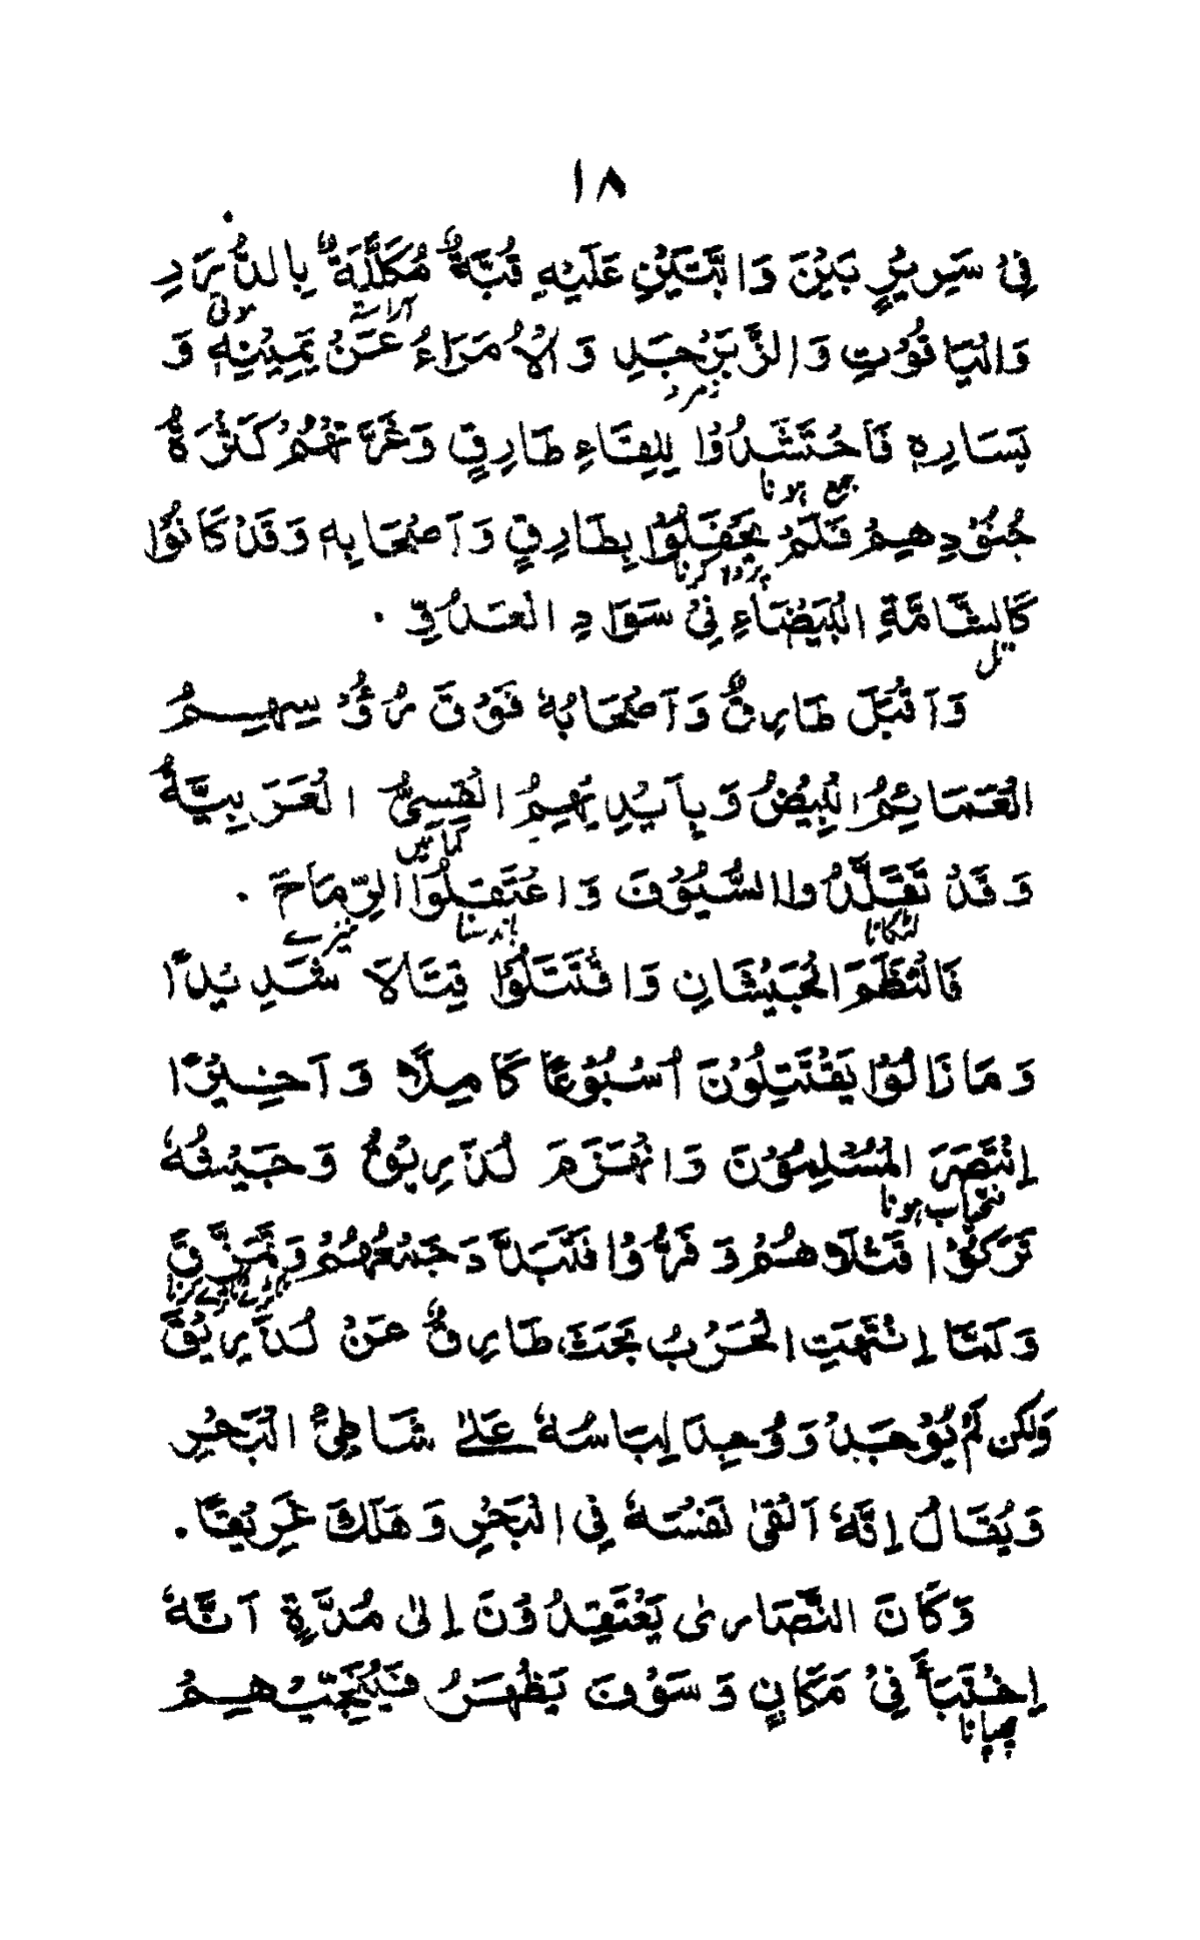 ١٨
فِيْ سَرِيْرٍ بَيْنَ دَابَّتَيْنِ عَلَيْهِ قُبَّةٌ مُكَلَّلَةٌ بِالدُّرَرِ
آراستہ موتی
وَالْيَاقُوْتِ وَالزَّبَرْجَدِ وَالْأُمَرَاءُ عَنْ يَمِيْنِهٖ وَ
زمرد
يَسَارِهٖ فَاحْتَشَدُوْا لِلِقَاءِ طَارِقٍ وَغَرَّتْهُمْ كَثْرَةُ
جمع ہونا
جُنُوْدِهِمْ فَلَمْ يَحْفَلُوْا بِطَارِقٍ وَأَصْحَابِهٖ وَقَدْ كَانُوْا
پرواہ کرنا
كَالشَّامَّةِ الْبَيْضَاءِ فِيْ سَوَادِ الْعَدُوِّ ۔
تل
وَأَقْبَلَ طَارِقٌ وَأَصْحَابُهٗ فَوْقَ رُؤُوْسِهِمْ
الْعَمَائِمُ الْبِيْضُ وَبِأَيْدِيْهِمُ الْقِسِيُّ الْعَرَبِيَّةُ
کمانیں
وَقَدْ تَقَلَّدُوا السُّيُوْفَ وَاعْتَقَلُوا الرِّمَاحَ ۔
لٹکانا باندھنا نیزے
فَالْتَطَمَ الْجَيْشَانِ وَاقْتَتَلُوْا قِتَالًا شَدِيْدًا
وَمَا زَالُوْا يَقْتَتِلُوْنَ أُسْبُوْعًا كَامِلًا وَأَخِيْرًا
اِنْتَصَرَ الْمُسْلِمُوْنَ وَانْهَزَمَ لُذَرِيْقُ وَجَيْشُهٗ
فتحیاب ہونا
تَرَكُوْا قَتْلَاهُمْ وَفَرُّوْا فَتَبَدَّدَ جَمْعُهُمْ وَتَمَزَّقَ
ٹکڑے ٹکڑے کرنا
وَلَمَّا اِنْتَهَتِ الْحَرْبُ بَحَثَ طَارِقٌ عَنْ لُذَرِيْقَ
وَلٰكِنْ لَمْ يُوْجَدْ وَوُجِدَ لِبَاسُهٗ عَلىٰ شَاطِئِ الْبَحْرِ
وَيُقَالُ اِنَّهٗ اَلْقىٰ نَفْسَهٗ فِي الْبَحْرِ وَهَلَكَ غَرِيْقًا ۔
وَكَانَ النَّصَارىٰ يَعْتَقِدُوْنَ اِلىٰ مُدَّةٍ اَنَّهٗ
اِخْتَبَأَ فِيْ مَكَانٍ وَسَوْفَ يَظْهَرُ فَيُنْجِيْهِمْ
چھپانا